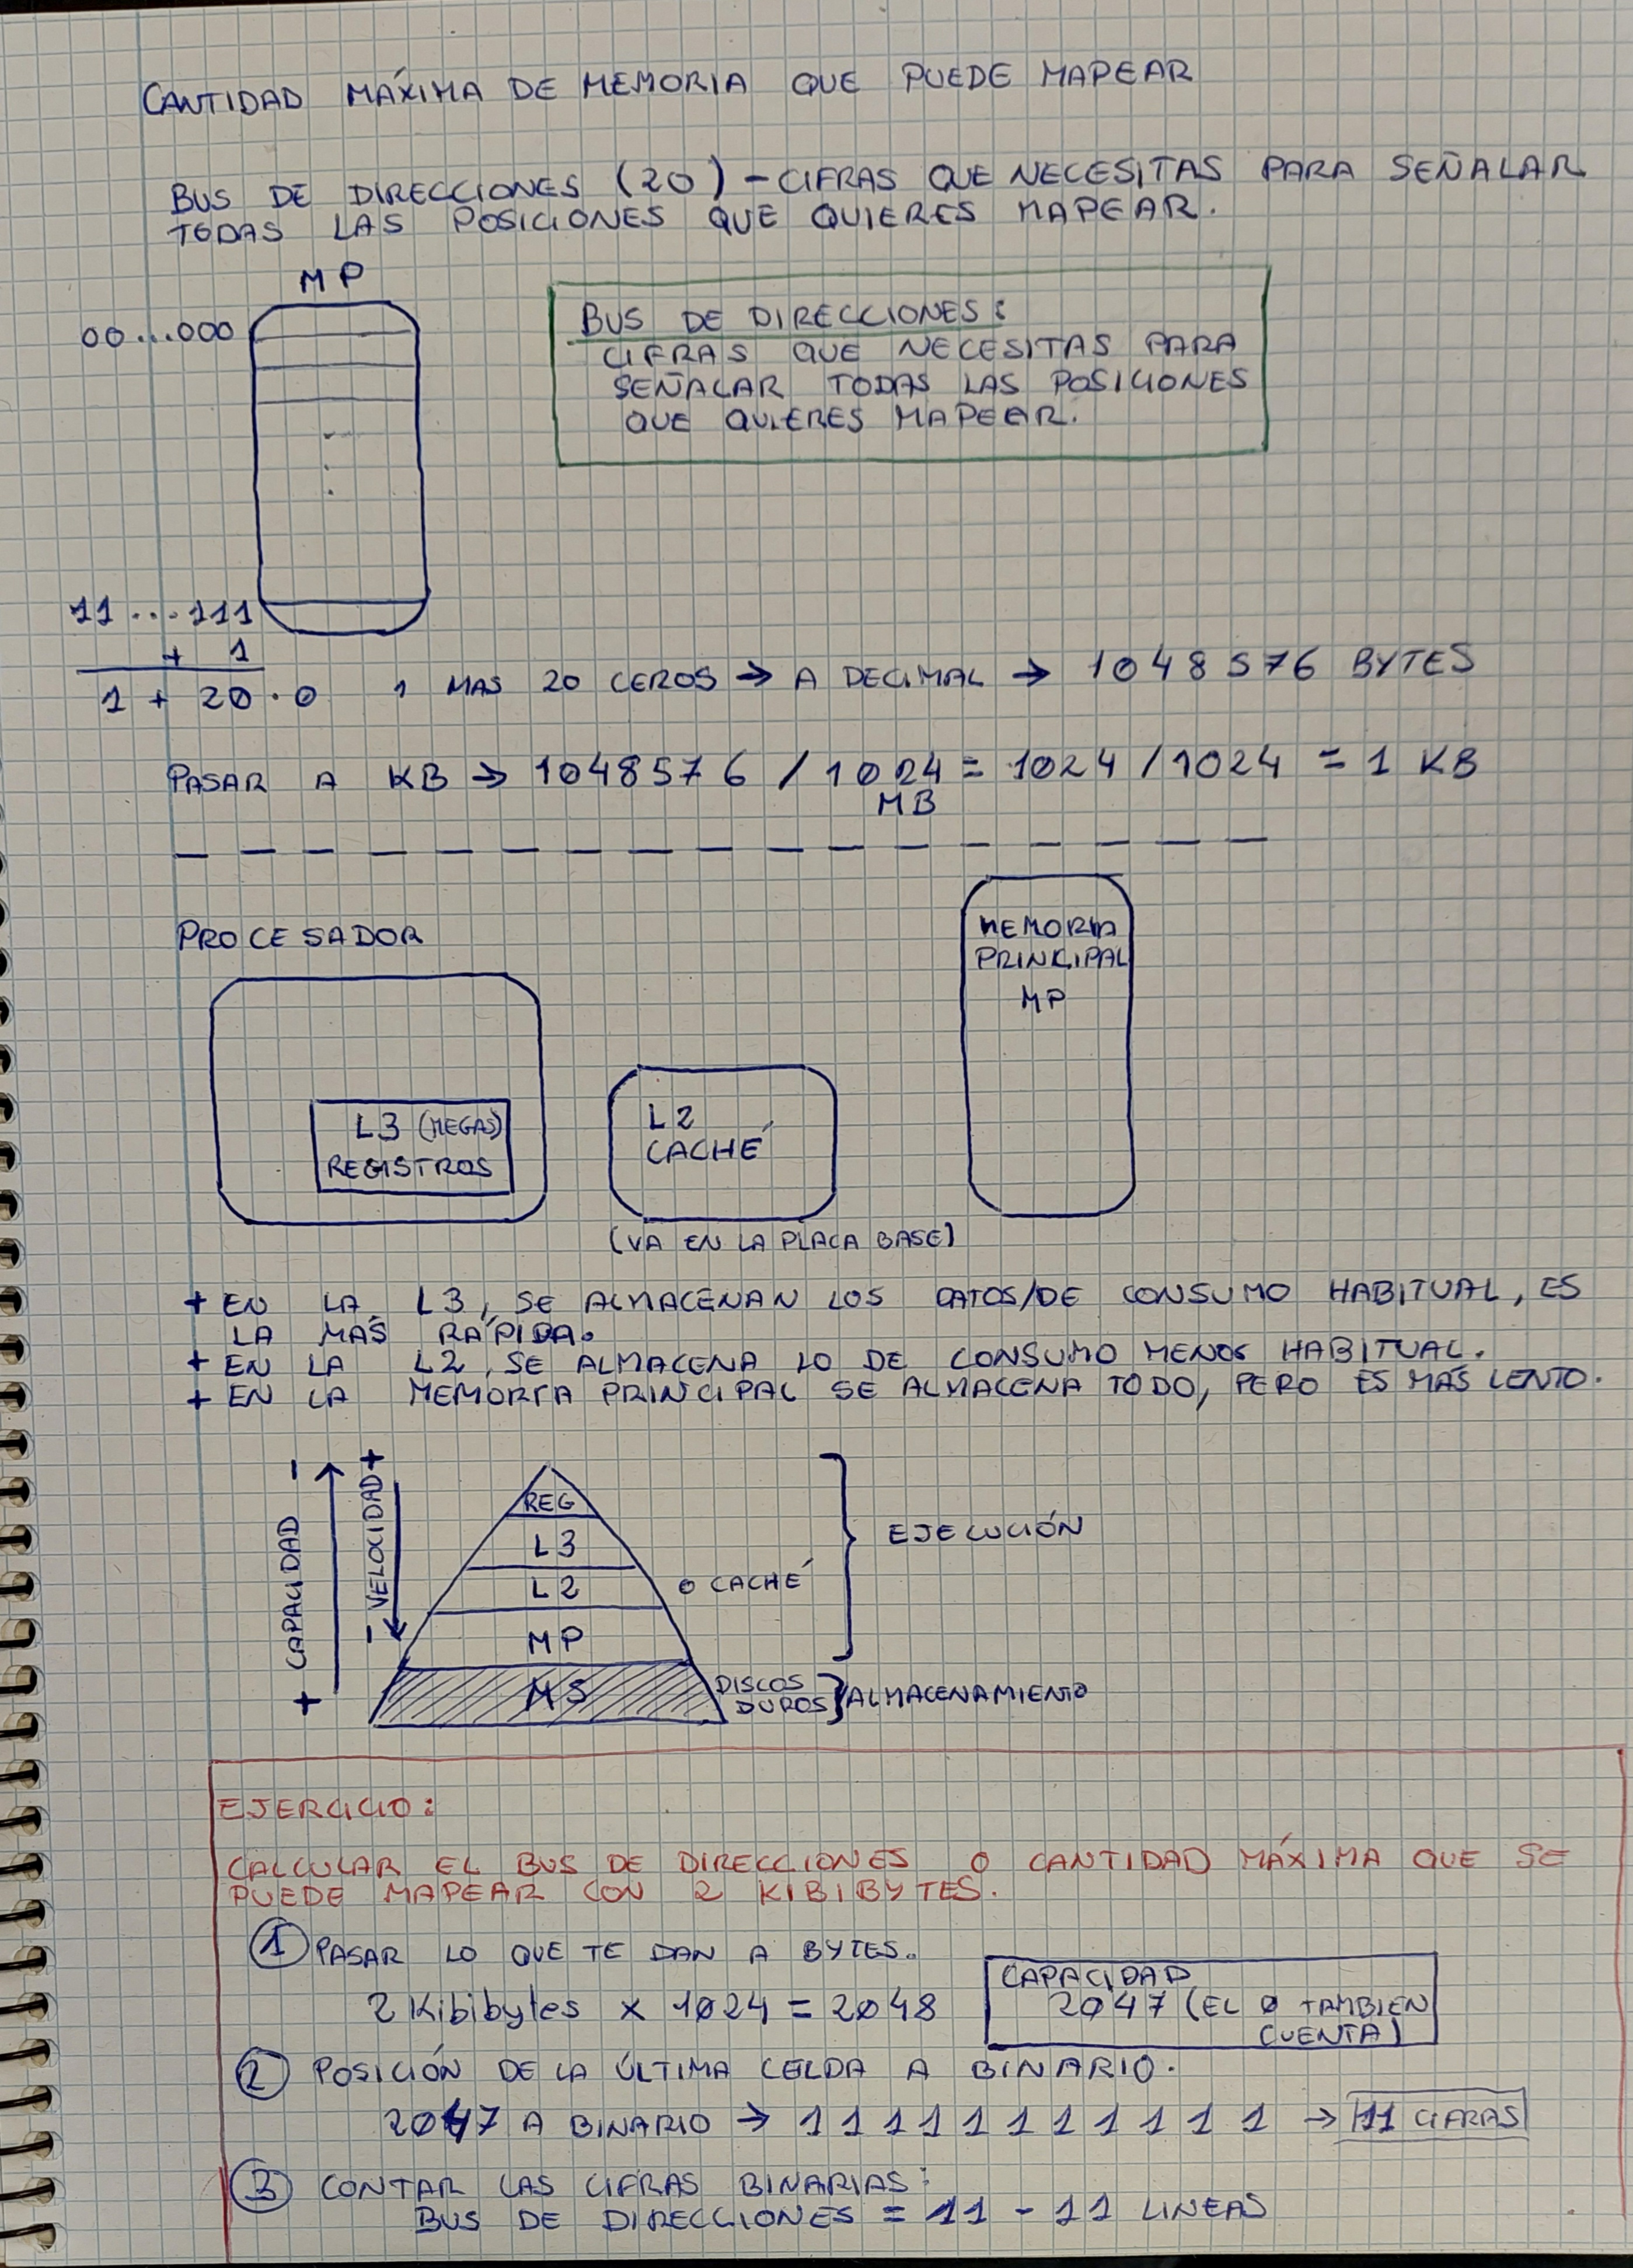 CANTIDAD MÁXIMA DE MEMORIA QUE PUEDE MAPEAR
BUS DE DIRECCIONES (20) - CIFRAS QUE NECESITAS PARA SEÑALAR
TODAS LAS POSICIONES QUE QUIERES MAPEAR.
MP
00...000
BUS DE DIRECCIONES:
CIFRAS QUE NECESITAS PARA
SEÑALAR TODAS LAS POSICIONES
QUE QUIERES MAPEAR.
11...111
+ 1
1 + 20·0 1 MAS 20 CEROS → A DECIMAL → 1048576 BYTES
PASAR A KB → 1048576 / 1024 = 1024 / 1024 = 1 KB
MB
PROCESADOR
L3 (MEGAS)
REGISTROS
L2
CACHÉ
(VA EN LA PLACA BASE)
MEMORIA
PRINCIPAL
MP
+ EN LA L3, SE ALMACENAN LOS DATOS/DE CONSUMO HABITUAL, ES
LA MÁS RÁPIDA.
+ EN LA L2, SE ALMACENA LO DE CONSUMO MENOS HABITUAL.
+ EN LA MEMORIA PRINCIPAL SE ALMACENA TODO, PERO ES MÁS LENTO.
+ CAPACIDAD -
- VELOCIDAD +
REG
L3
L2
MP
MS
O CACHÉ
EJECUCIÓN
DISCOS
DUROS
ALMACENAMIENTO
EJERCICIO:
CALCULAR EL BUS DE DIRECCIONES O CANTIDAD MÁXIMA QUE SE
PUEDE MAPEAR CON 2 KIBIBYTES.
1 PASAR LO QUE TE DAN A BYTES.
2 Kibibytes x 1024 = 2048
CAPACIDAD
2047 (EL 0 TAMBIEN
CUENTA)
2 POSICIÓN DE LA ÚLTIMA CELDA A BINARIO.
2047 A BINARIO → 1 1 1 1 1 1 1 1 1 1 1 → 11 CIFRAS
3 CONTAR LAS CIFRAS BINARIAS:
BUS DE DIRECCIONES = 11 - 11 LINEAS